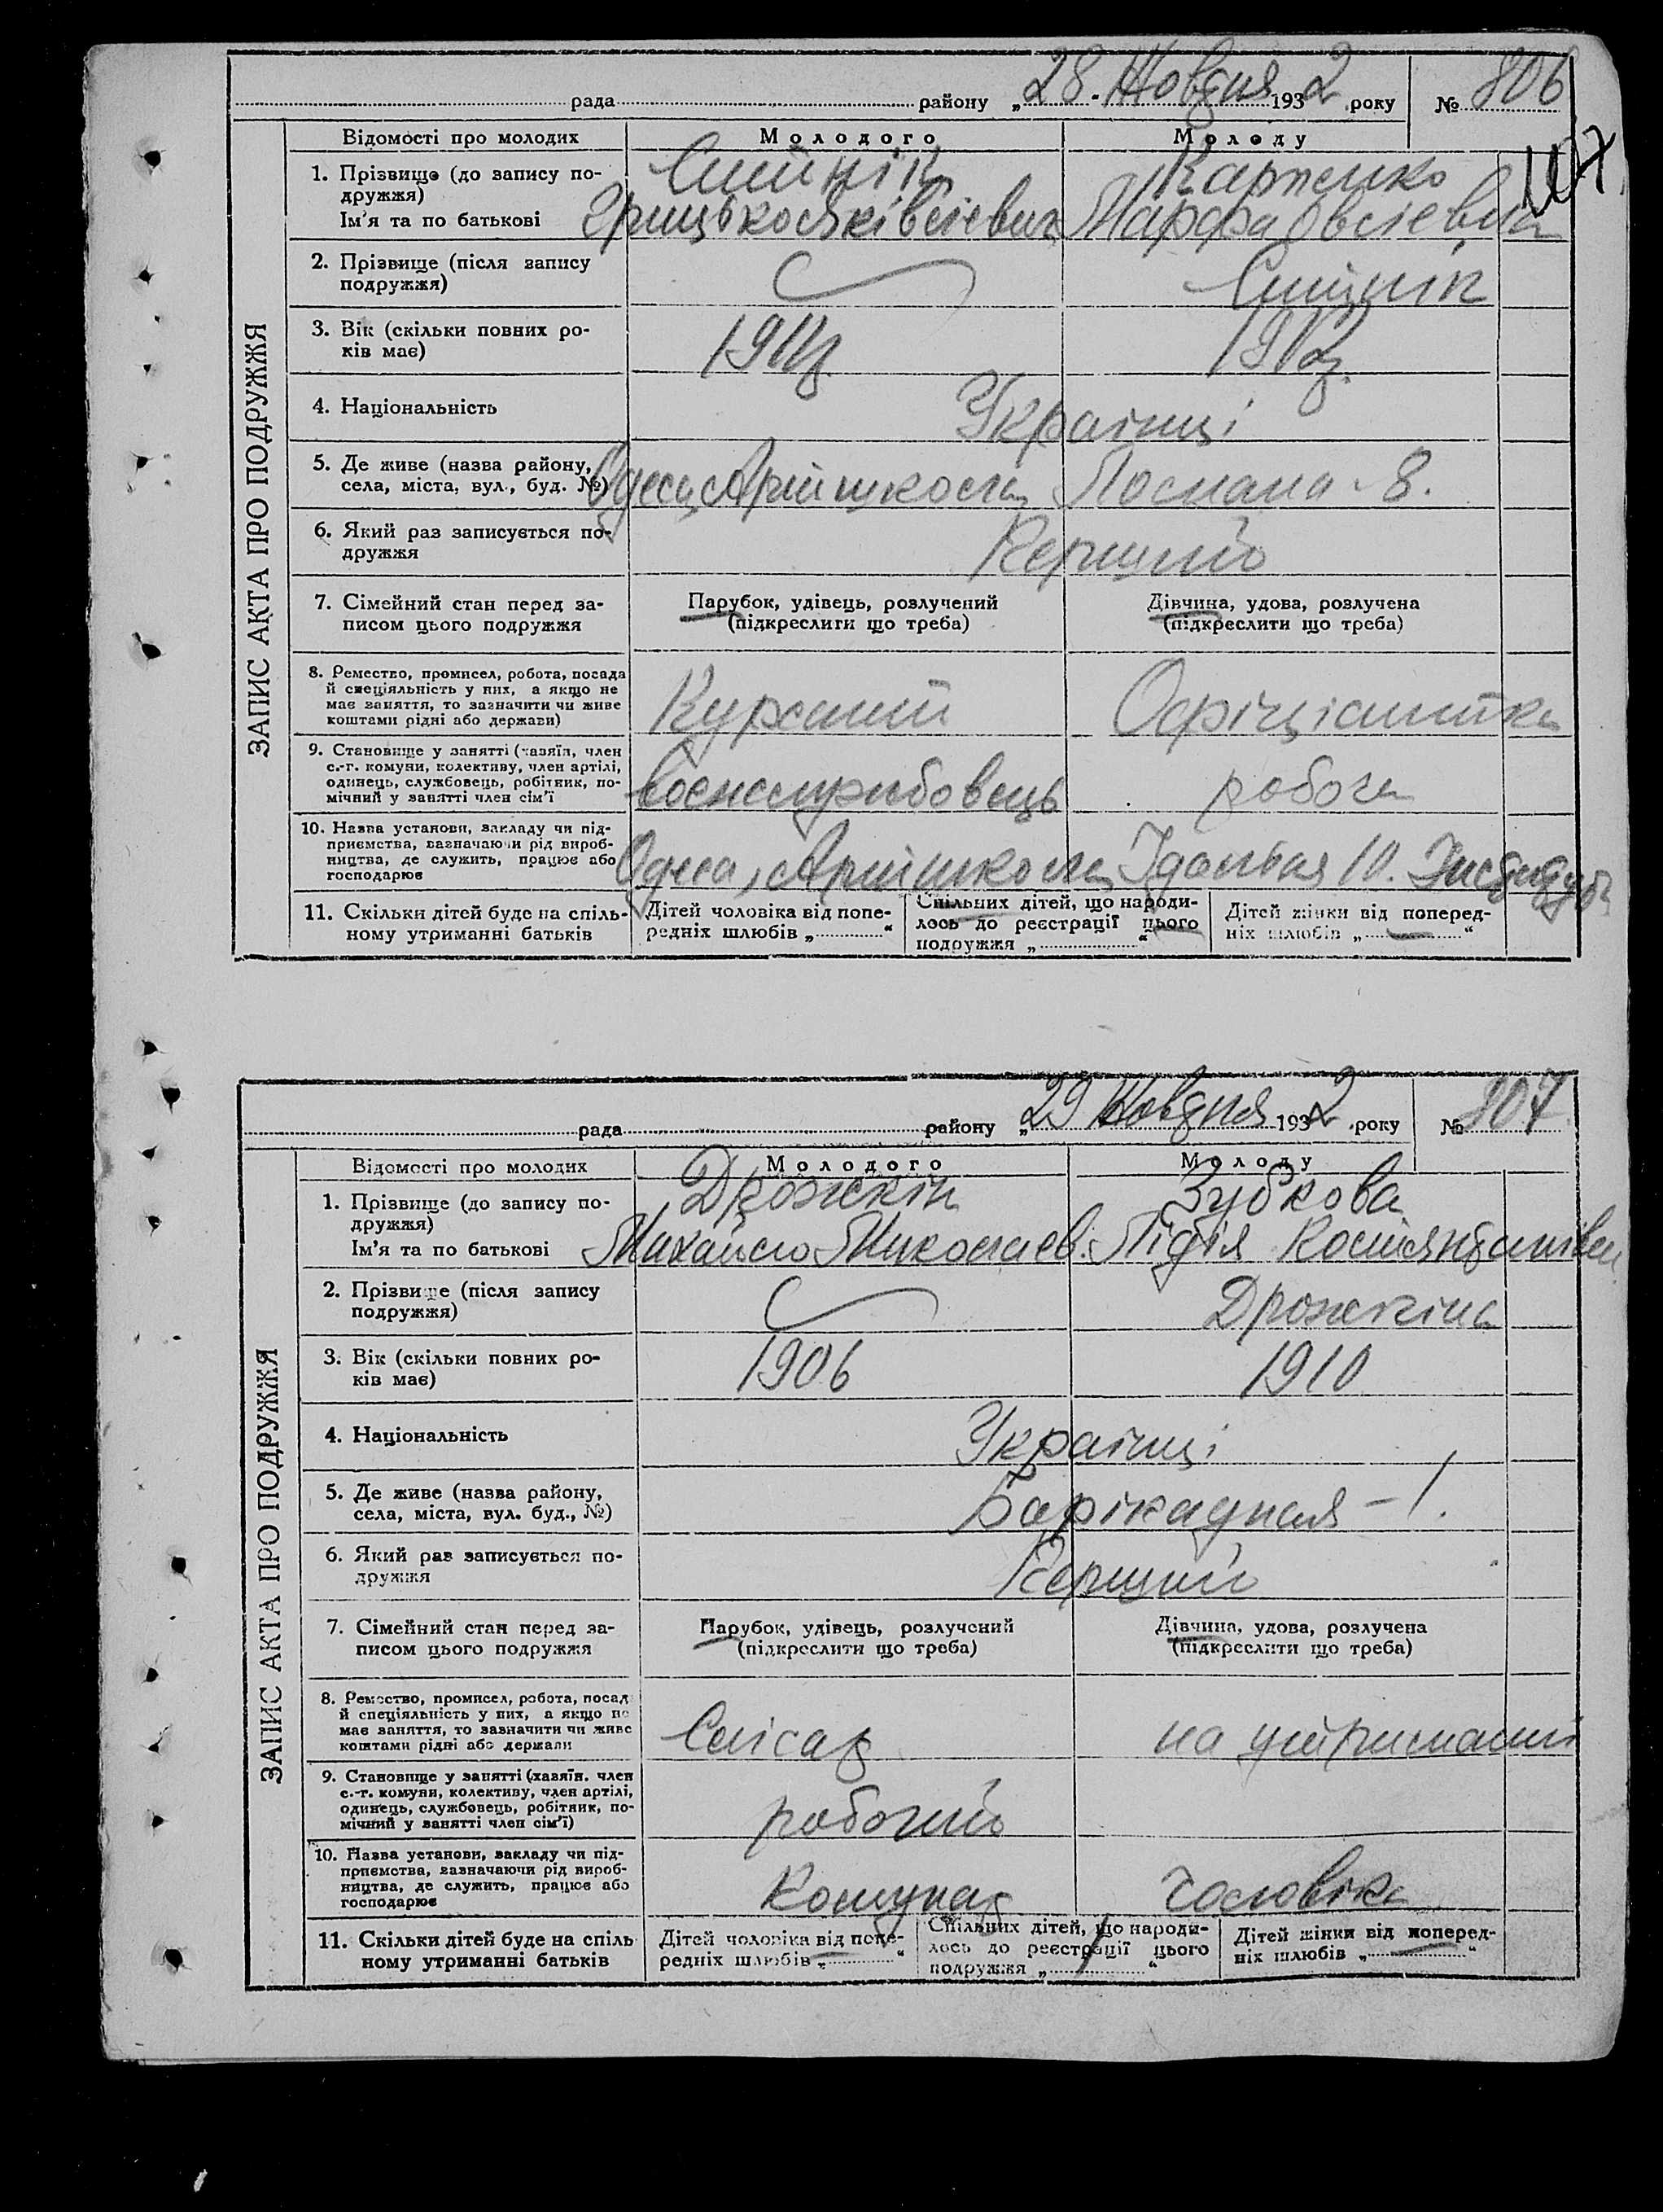 рада района „28" Жовтня 1932 року № 806
107
ЗАПИС АКТА ПРО ПОДРУЖЖЯ
Відомості про молодих Молодого Молоду
1. Прізвище (до запису по- Карпенко
дружжя)
Ім'я та по батькові Грицько Марфа Овсієвна
2. Прізвище (після запису
подружжя)
3. Вік (скільки повних ро-
ків має) 1911 1912
4. Національність Українці
5. Де живе (назва району,
села, міста, вул., буд. №) Одеса, Артшкола 8.
6. Який раз записується по-
дружжя Перший
7. Сімейний стан перед за- Парубок, удівець, розлучений Дівчина, удова, розлучена
писом цього подружжя (підкреслити що треба) (підкреслити що треба)
8. Ремество, промисел, робота, посада
й спеціяльність у них, а якщо не
має заняття, то зазначити чи живе
коштами рідні або держави) Курсант Офіціантка
9. Становище у занятті (хазяїн, член
с.-г. комуни, колективу, член артілі,
одинець, службовець, робітник, по-
мічний у занятті член сім'ї воєнслужбовець робоча
10. Назва установи, закладу чи під-
приємства, зазначаючи рід вироб-
ництва, де служить, працює або
господарює Одеса, Артшкола Їдальня 10.
11. Скільки дітей буде на спіль- Дітей чоловіка від попе- Спільних дітей, що народи- Дітей жінки від поперед-
ному утриманні батьків редніх шлюбів „ “ лось до реєстрації цього ніх шлюбів „ — “
подружжя „ “
рада району „29 Жовтня 1932 року № 807
ЗАПИС АКТА ПРО ПОДРУЖЖЯ
Відомості про молодих Молодого Молоду
1. Прізвище (до запису по- Дрожкін Зубкова
дружжя)
Ім'я та по батькові Михайло Миколаєв. Лідія Костянтинівна
2. Прізвище (після запису
подружжя) Дрожкіна
3. Вік (скільки повних ро-
ків має) 1906 1910
4. Національність Українці
5. Де живе (назва району,
села, міста, вул. буд., №) Барікадная – 1.
6. Який раз записується по-
дружжя Перший
7. Сімейний стан перед за- Парубок, удівець, розлучений Дівчина, удова, розлучена
писом цього подружжя (підкреслити що треба) (підкреслити що треба)
8. Ремество, промисел, робота, посад
й спеціяльність у них, а якщо не
має заняття, то зазначити чи живе
коштами рідні або держави Слісар на утриманні
9. Становище у занятті (хазяїн. член
с.-г. комуни, колективу, член артілі,
одинець, службовець, робітник, по-
мічний у занятті член сім'ї) робочий
10. Назва установи, закладу чи під-
приємства, зазначаючи рід вироб-
ництва, де служить, працює або
господарює Комунар чоловіка
11. Скільки дітей буде на спіль Дітей чоловіка від попе- Спільних дітей, що народи- Дітей жінки від поперед-
ному утриманні батьків редніх шлюбів „ “ лось до реєстрації цього ніх шлюбів „ — “
подружжя „ 1 “